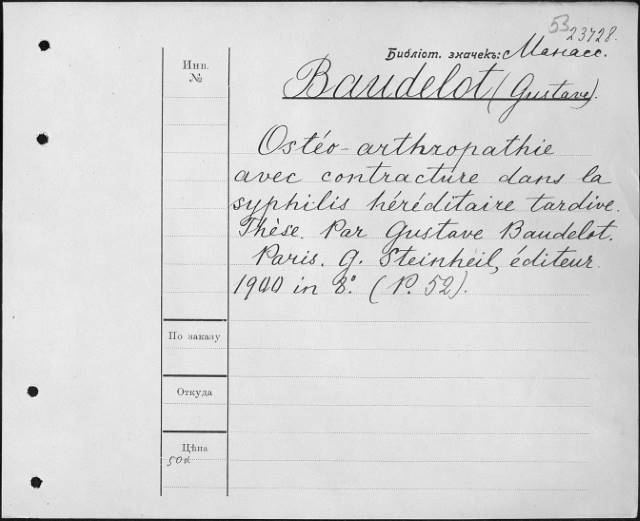 53 23728.
Библіот. значекъ: Манасс.
Инв.
№
Baudelot (Gustave).
Ostéo-arthropathie
avec contracture dans la
syphilis héréditaire tardive.
Thèse. Par Gustave Baudelot.
Paris. G. Steinheil, éditeur.
1900 in 8°. (P. 52).
По заказу
Откуда
Цѣна